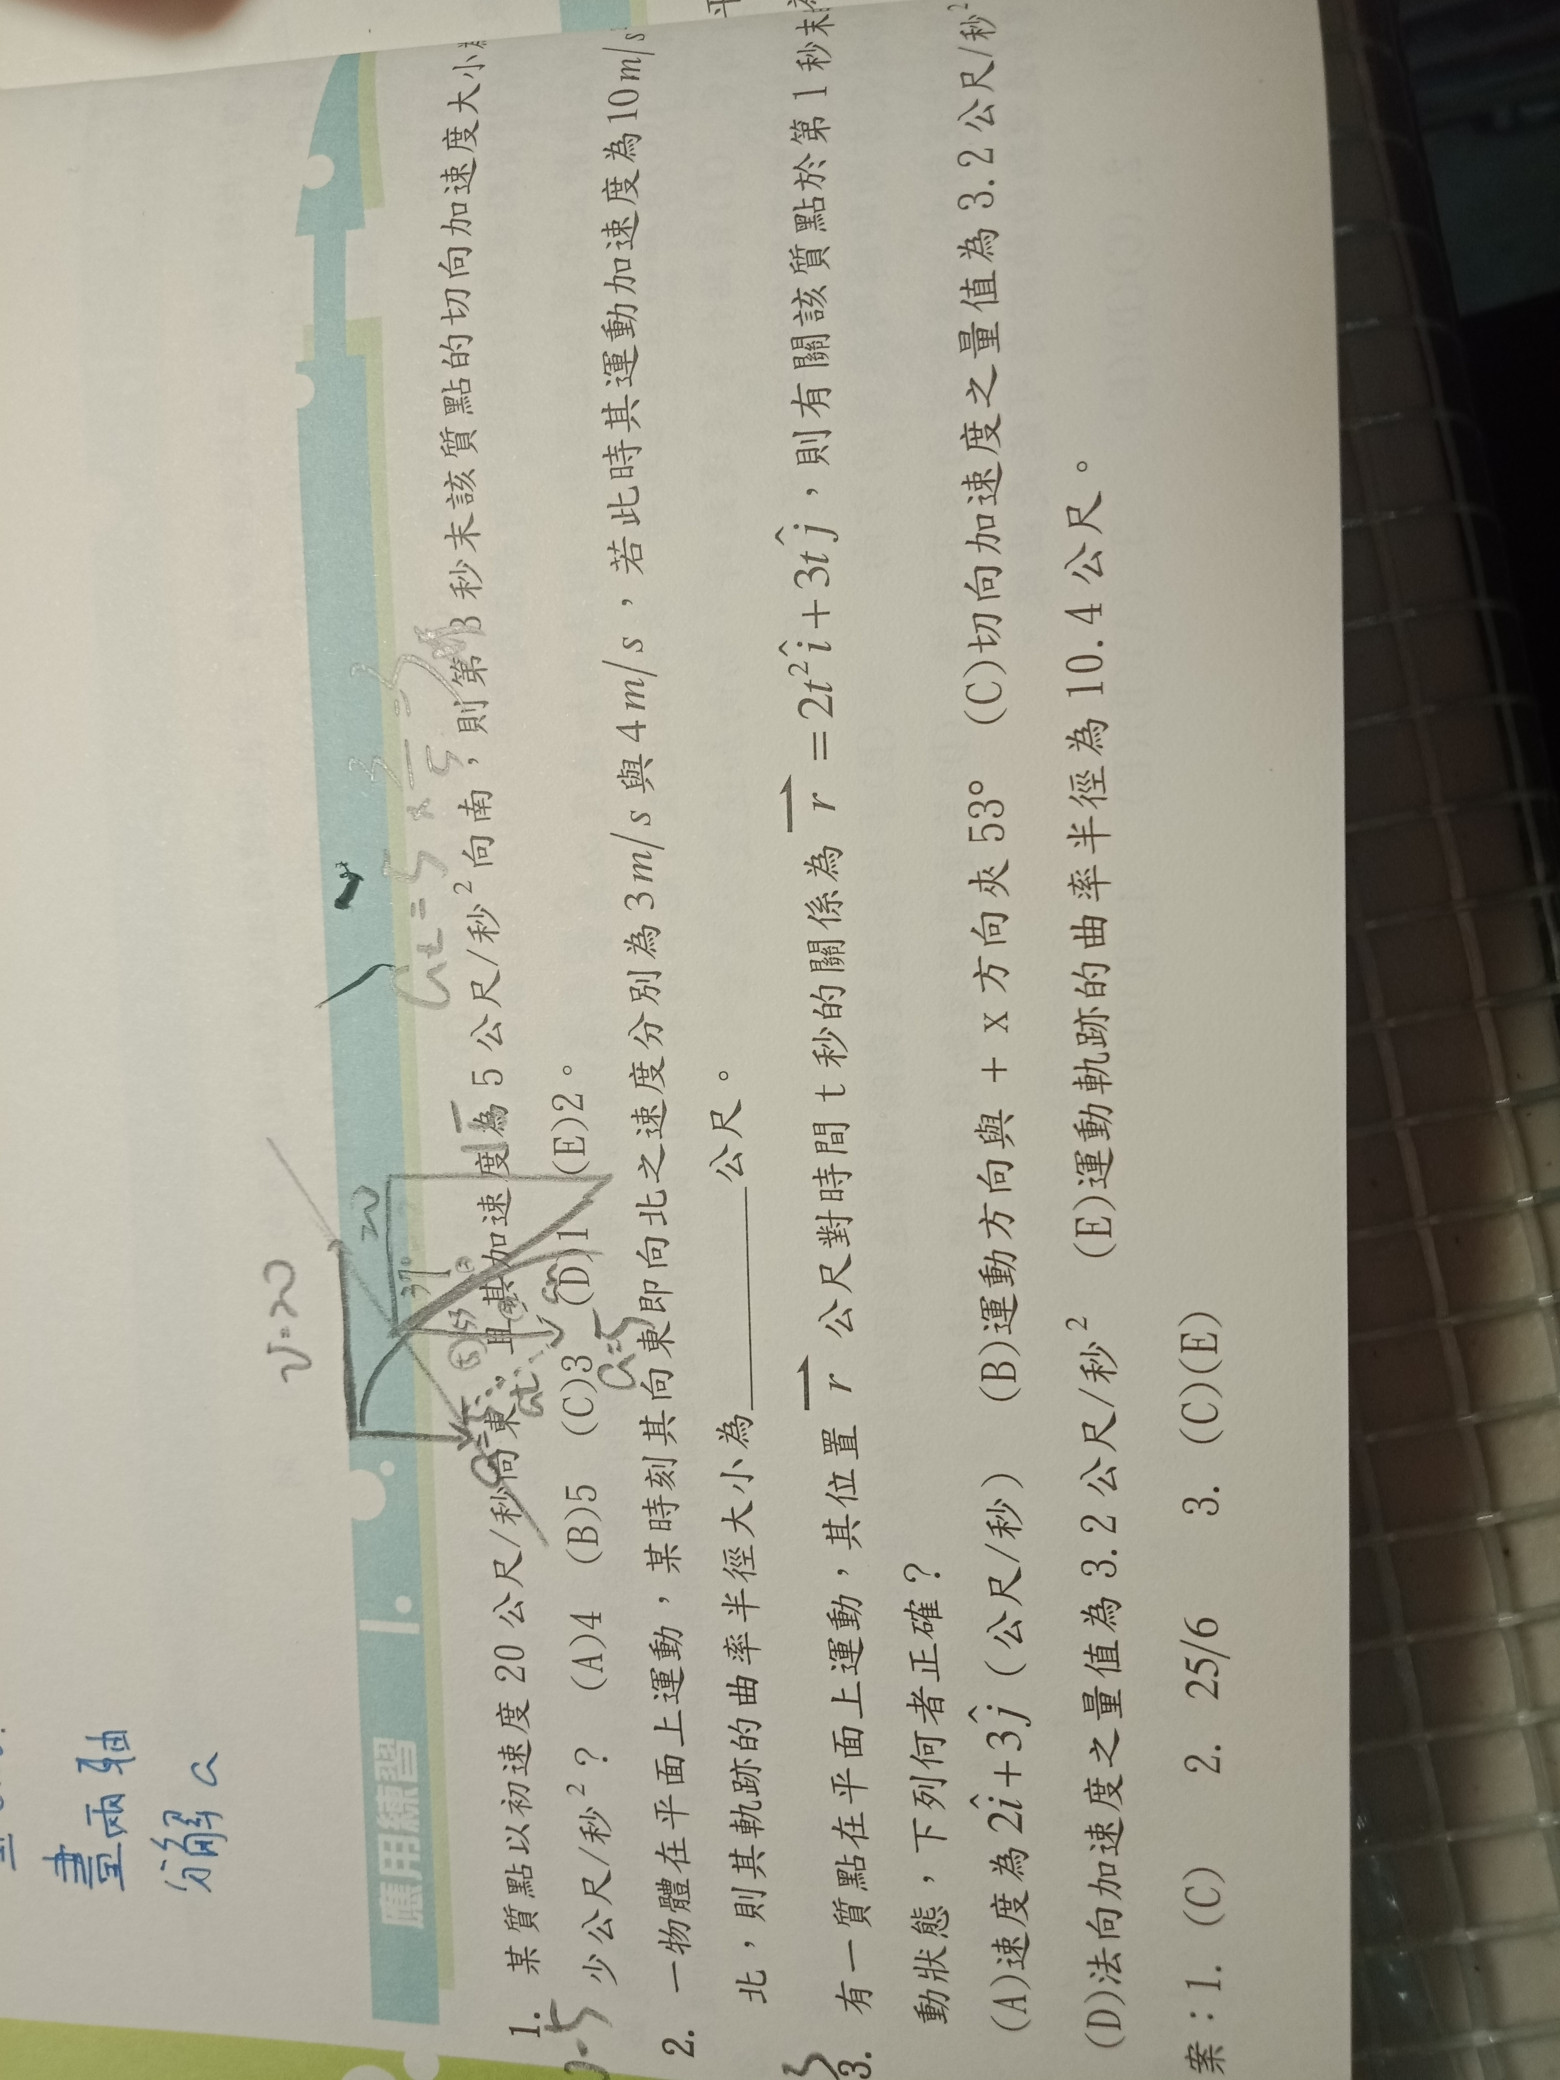 畫兩軸
分解 a
v=20
應用練習 1.
20
37°
at=5×3/5=3
1. 某質點以初速度 20 公尺/秒向東，且其加速度為 5 公尺/秒²向南，則第 3 秒末該質點的切向加速度大小
少公尺/秒²？ (A)4 (B)5 (C)3 (D)1 (E)2。
a=5
2. 一物體在平面上運動，某時刻其向東即向北之速度分別為 3m/s 與 4m/s，若此時其運動加速度為 10m/s
北，則其軌跡的曲率半徑大小為________公尺。
3. 有一質點在平面上運動，其位置 r⃗ 公尺對時間 t 秒的關係為 r⃗ = 2t²î + 3tĵ，則有關該質點於第 1 秒末
動狀態，下列何者正確？
(A)速度為 2î+3ĵ（公尺/秒） (B)運動方向與 + x 方向夾 53° (C)切向加速度之量值為 3.2 公尺/秒²
(D)法向加速度之量值為 3.2 公尺/秒² (E)運動軌跡的曲率半徑為 10.4 公尺。
案：1. (C) 2. 25/6 3. (C)(E)